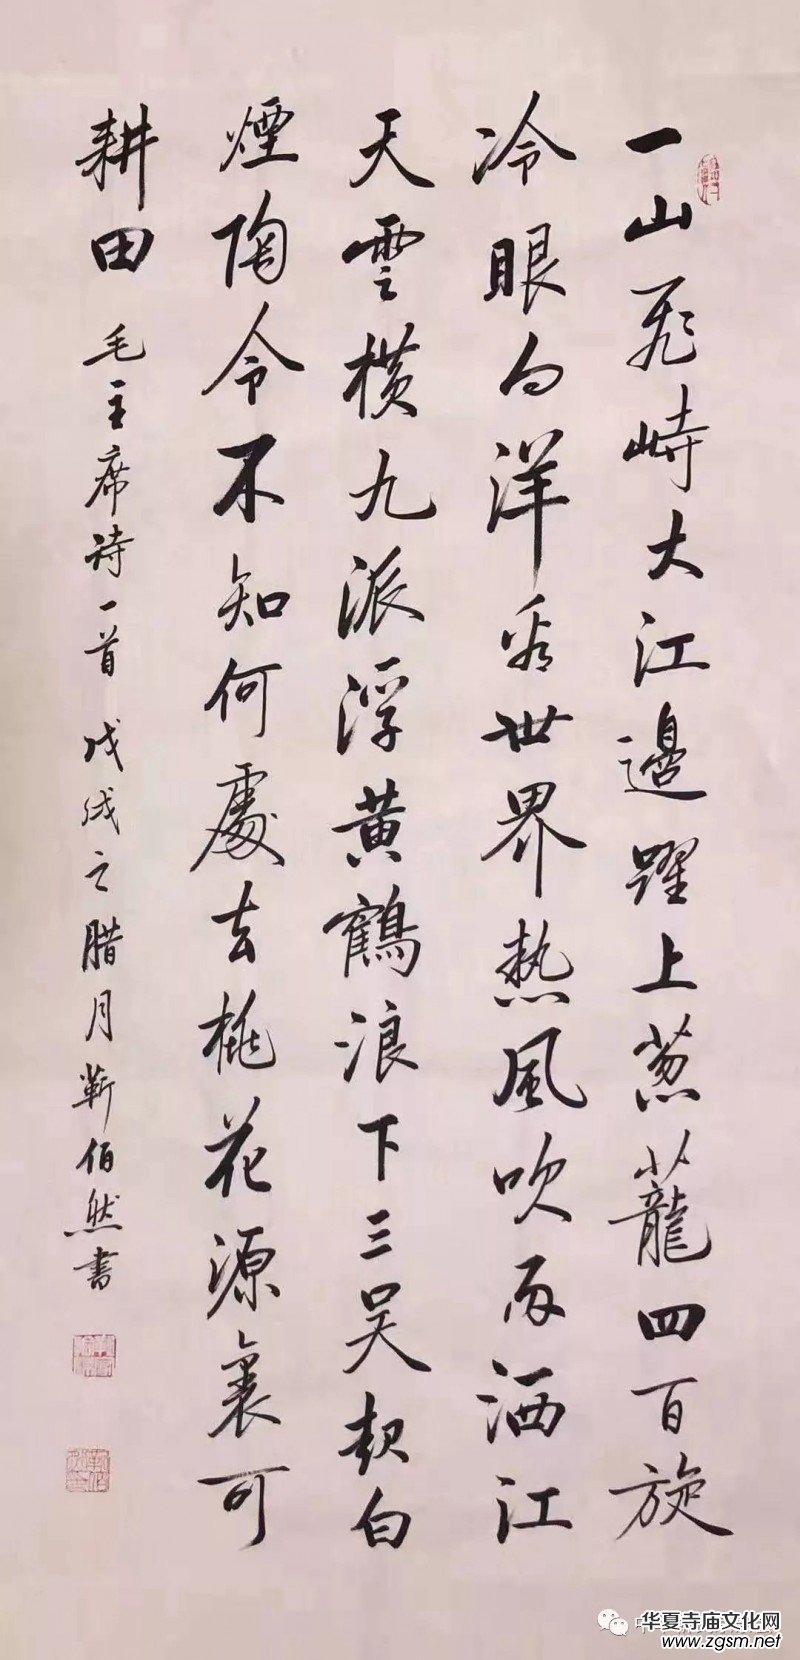 一山飛峙大江邊躍上葱蘢四百旋
冷眼向洋看世界熱風吹雨洒江
天雲横九派浮黄鶴浪下三吴起白
煙陶令不知何處去桃花源裏可
耕田
毛主席詩一首 戊戌之腊月蕲伯然書
华夏寺庙文化网
www.zgsm.net